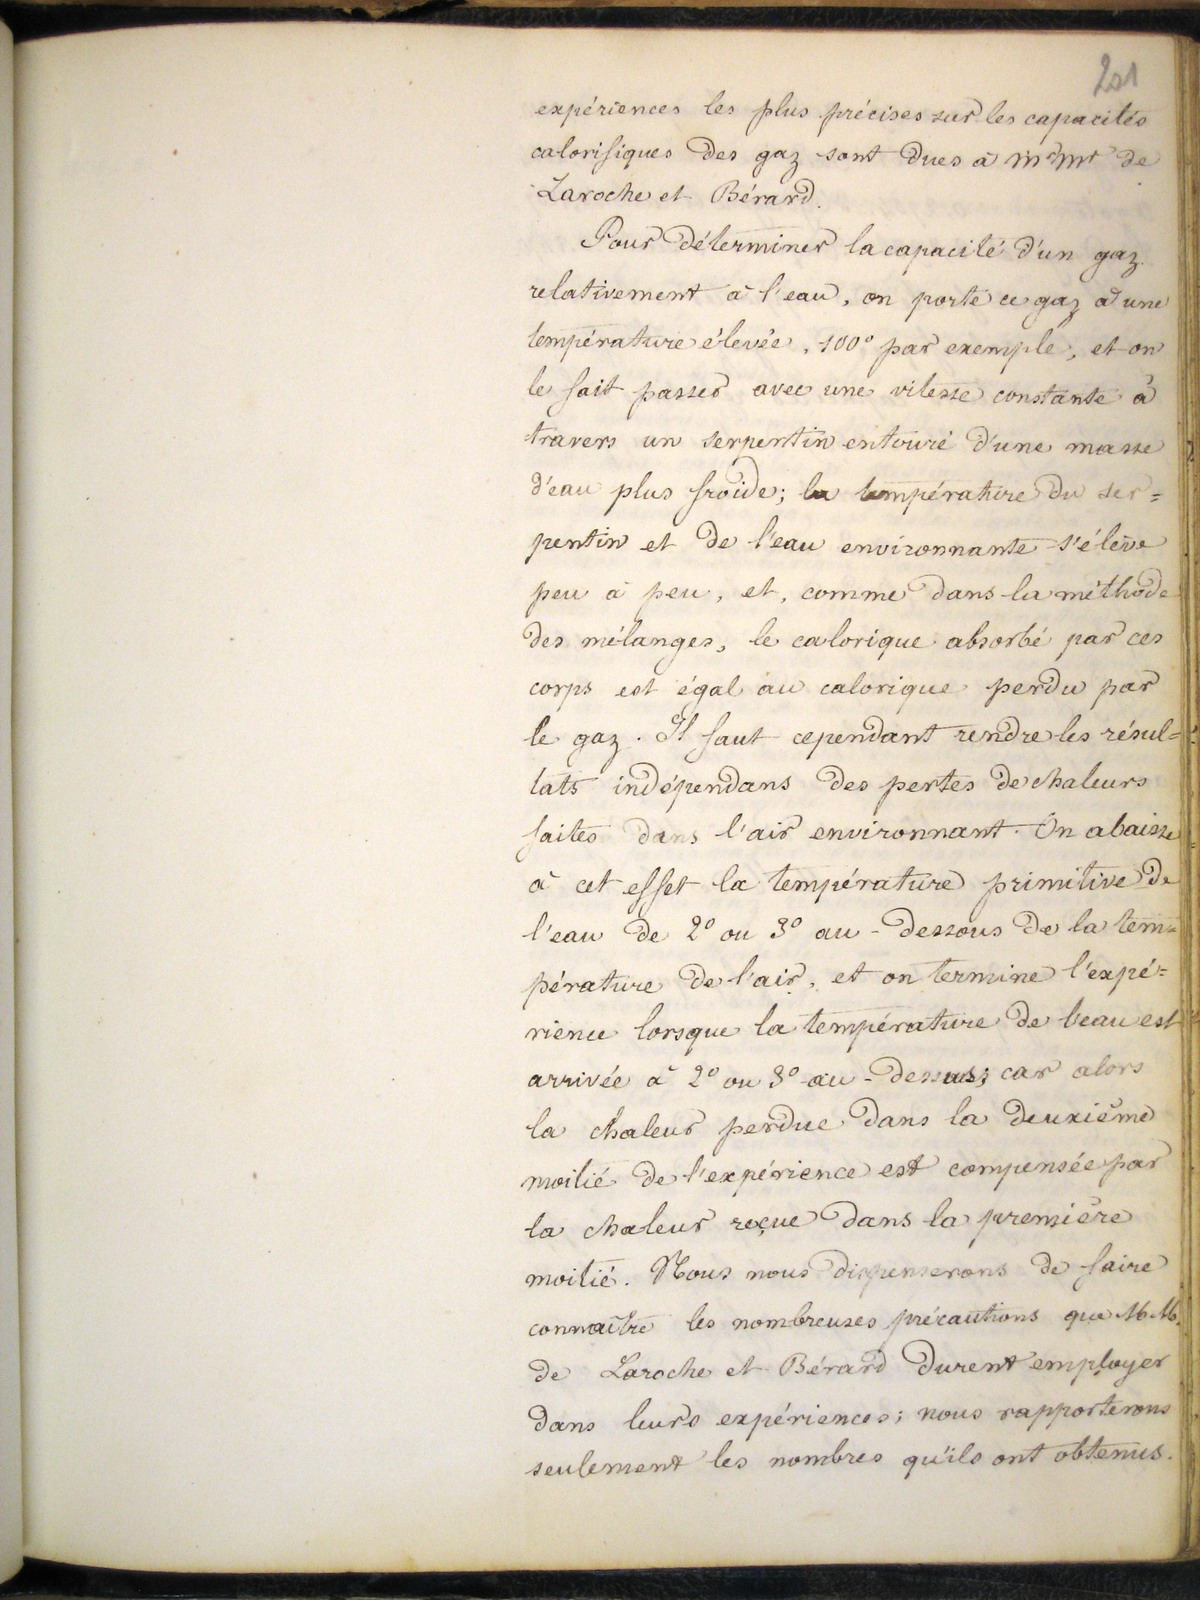 201
expériences les plus précises sur les capacités
calorifiques des gaz sont dues à MrMrs de
Laroche et Bérard.
Pour déterminer la capacité d'un gaz
relativement à l'eau, on porte ce gaz à une
température élevée, 100° par exemple, et on
le fait passer avec une vitesse constante à
travers un serpentin entouré d'une masse
d'eau plus froide; la température du ser=
pentin et de l'eau environnante s'élève
peu à peu, et, comme dans la méthode
des mélanges, le calorique absorbé par ces
corps est égal au calorique perdu par
le gaz. Il faut cependant rendre les résul=
tats indépendans des pertes de chaleurs
faites dans l'air environnant. On abaisse
à cet effet la température primitive de
l'eau de 2° ou 3° au-dessous de la tem=
pérature de l'air, et on termine l'expé=
rience lorsque la température de l'eau est
arrivée à 2° ou 3° au-dessus; car alors
la chaleur perdue dans la deuxième
moitié de l'expérience est compensée par
la chaleur reçue dans la première
moitié. Nous nous dispenserons de faire
connaître les nombreuses précautions que M.M.
de Laroche et Bérard durent employer
dans leurs expériences; nous rapporterons
seulement les nombres qu'ils ont obtenus.